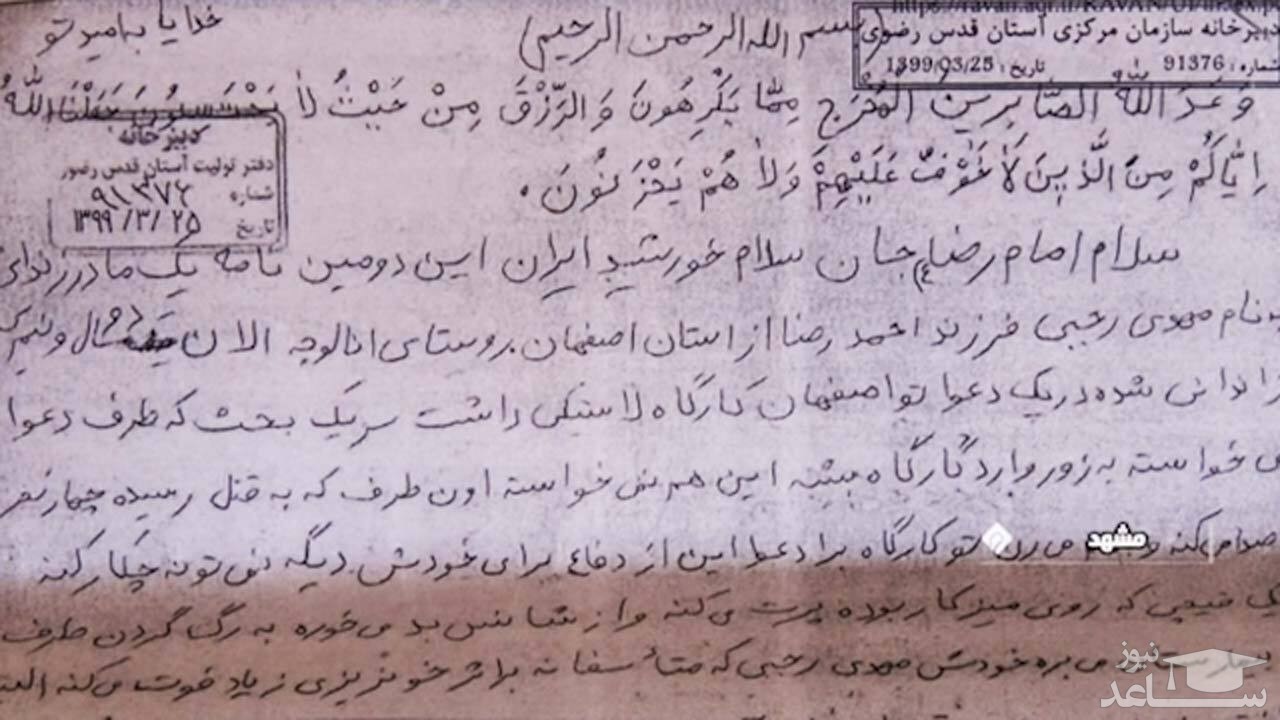 https://ravan.aqr.ir/RAVAN/UI/
دبیرخانه سازمان مرکزی آستان قدس رضوی
شماره : 91376 تاریخ : 1399/03/25
خدایا به امید تو
بسم الله الرحمن الرحیم
وَعَدَ اللهُ الصّابِرینَ المَخْرَجَ مِمّا یَکْرَهُونَ وَالرِّزْقَ مِنْ حَیْثُ لاٰ یَحْتَسِبُونَ جَعَلْنَا اللهُ
دبیرخانه
دفتر تولیت آستان قدس رضوی
شماره ۹۱۳۷۶
تاریخ ۱۳۹۹/۳/۲۵
اِیّاکُمْ مِنَ الَّذینَ لاٰ خَوْفٌ عَلَیْهِمْ وَلاٰ هُمْ یَحْزَنُونَ .
سلام امام رضا(ع) جان سلام خورشید ایران این دومین نامه یک مادر زندانی
به نام مهدی رجبی فرزند احمد رضا از استان اصفهان روستای الان سال و نیم که
زندانی شده در یک دعوا تو اصفهان کارگاه لاستیکی داشت سر یک بحث که طرف دعوا
می خواسته به زور وارد کارگاه بشه این هم نمی خواسته اون طرف که به قتل رسیده چهار نفر
صدا می کنه می رن تو کارگاه برا دعوا این از دفاع برای خودش دیگه نمی تونه چکار کنه
یک قیچی که روی میز کار بوده پرت می کنه و از شانس بد می خوره به رگ گردن طرف
بیمارستان می بره خودش مهدی رجبی که متأسفانه بر اثر خونریزی زیاد فوت می کنه البته
مشهد
نیوز
ساعد